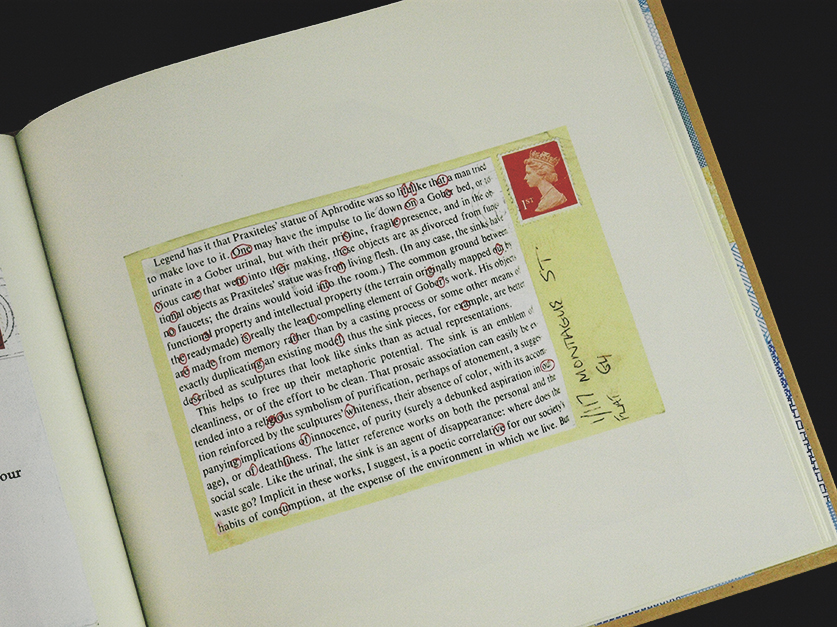 Legend has it that Praxiteles' statue of Aphrodite was so lifelike that a man tried
to make love to it. One may have the impulse to lie down on a Gober bed, or to
urinate in a Gober urinal, but with their pristine, fragile presence, and in the
vious care that went into their making, these objects are as divorced from
tional objects as Praxiteles' statue was from living flesh. (In any case, the sinks have
no faucets; the drains would void into the room.) The common ground between
functional property and intellectual property (the terrain originally mapped by
the readymade) is really the least compelling element of Gober's work. His objects
are made from memory rather than by a casting process or some other means of
exactly duplicating an existing model, thus the sink pieces, for example, are better
described as sculptures that look like sinks than as actual representations.
This helps to free up their metaphoric potential. The sink is an emblem of
cleanliness, or of the effort to be clean. That prosaic association can easily be
tended into a religious symbolism of purification, perhaps of atonement, a
tion reinforced by the sculptures' whiteness, their absence of color, with its
panying implications of innocence, of purity (surely a debunked aspiration in our
age), or of deathliness. The latter reference works on both the personal and the
social scale. Like the urinal, the sink is an agent of disappearance: where does the
waste go? Implicit in these works, I suggest, is a poetic correlative for our society's
habits of consumption, at the expense of the environment in which we live. But
1ST
1/117 MONTAGUE ST.
FLAT
our